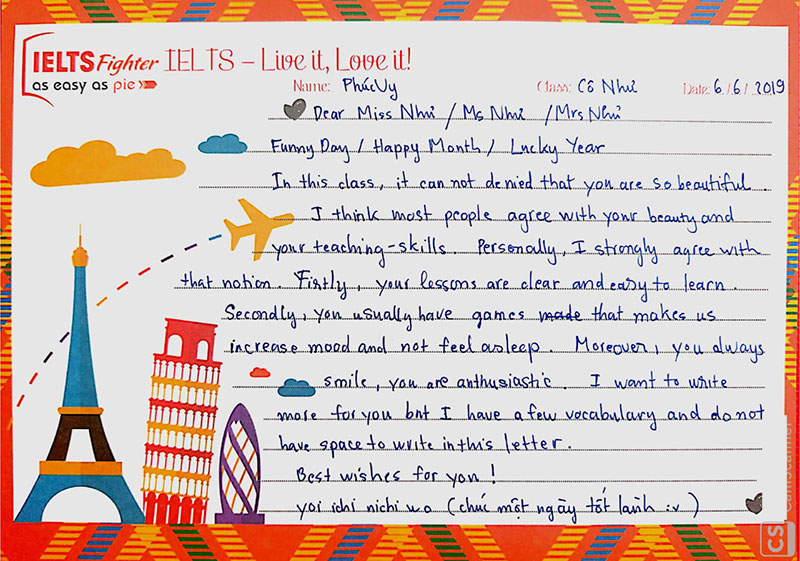 IELTS Fighter IELTS – Live it, Love it!
as easy as pie
Name: Phúc Vy Class: Cô Như Date: 6/6/2019
Dear Miss Như / Ms Như / Mrs Như
Funny Day / Happy Month / Lucky Year
In this class, it can not denied that you are so beautiful.
I think most people agree with your beauty and
your teaching-skills. Personally, I strongly agree with
that notion. Firstly, your lessons are clear and easy to learn.
Secondly, you usually have games made that makes us
increase mood and not feel asleep. Moreover, you always
smile, you are anthusiastic. I want to write
more for you but I have a few vocabulary and do not
have space to write in this letter.
Best wishes for you!
yoi ichi nichi wo (chúc một ngày tốt lành :v)
CS CamScanner